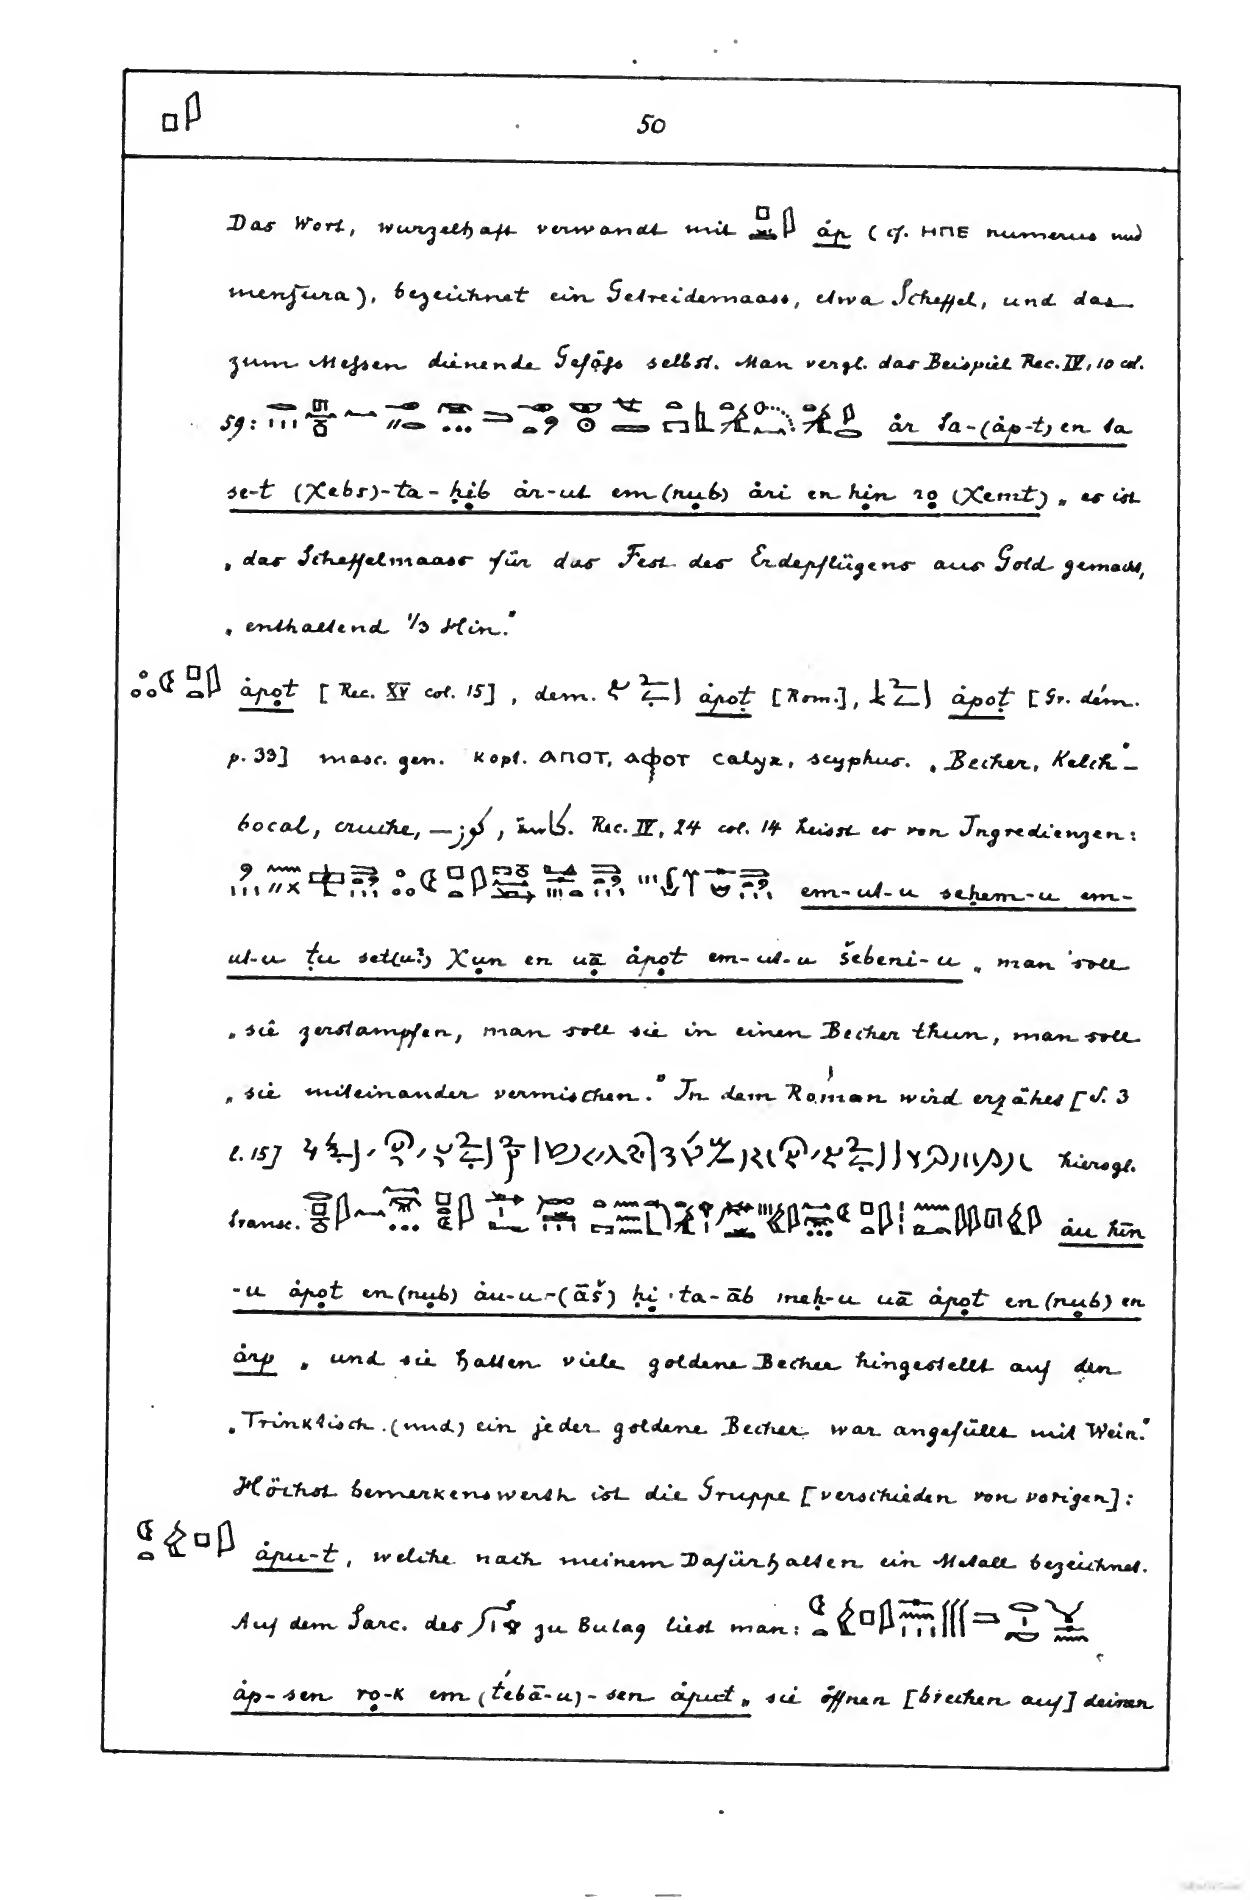 50
Das Wort, wurzelhaft verwandt mit áp (cf. ⲏⲡⲉ numerus und
mensura), bezeichnet ein Getreidemaass, etwa Scheffel, und das
zum Messen dienende Gefäss selbst. Man vergl. das Beispiel Rec. IV, 10 col.
59: ár ta-(áp-t) en ta
se-t (χebs)-ta-ḥib ár-ut em (nub) ári en hin ro (χemt) „es ist
„das Scheffelmaass für das Fest des Erdepflügens aus Gold gemacht,
„enthaltend 1/3 Hin.“
ápoṭ [Rec. XV col. 15], dem. ápoṭ [Rom.], ápoṭ [Gr. dém.
p. 33] masc. gen. kopt. ⲁⲡⲟⲧ, ⲁⲫⲟⲧ calyx, scyphus. „Becher, Kelch“ –
bocal, cruche, – كوز, كاسة. Rec. IV, 24 col. 14 heisst es von Ingredienzen:
em-ut-u seḥem-u em-
ut-u ṭu set(u?) χun en uā ápoṭ em-ut-u šebeni-u „man soll
„sie zerstampfen, man soll sie in einen Becher thun, man soll
„sie miteinander vermischen.“ In dem Roman wird erzählt [S. 3
l. 15] hierogl.
transc. áu hin
-u ápoṭ en (nub) áu-u-(āš) ḥi ta-āb meḥ-u uā ápoṭ en (nub) en
árp „und sie hatten viele goldene Becher hingestellt auf den
„Trinktisch (und) ein jeder goldene Becher war angefüllt mit Wein.“
Höchst bemerkenswerth ist die Gruppe [verschieden von vorigen]:
ápu-t, welche nach meinem Dafürhalten ein Metall bezeichnet.
Auf dem Sarc. des zu Bulaq liest man:
áp-sen ro-k em (t́ebā-u)-sen áput „sie öffnen [brechen auf] deinen